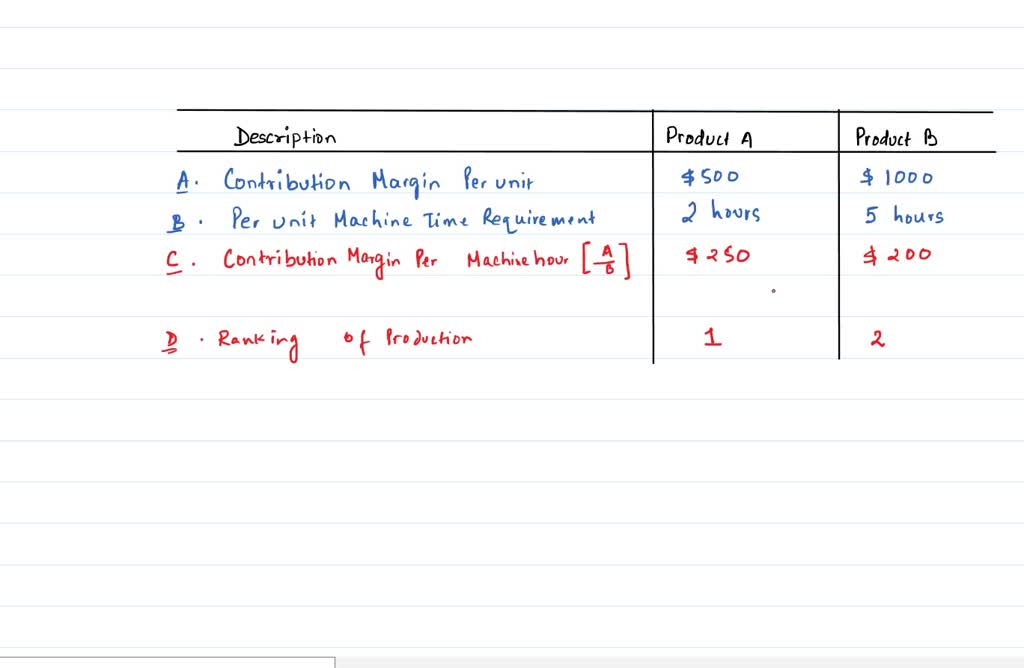 Description Product A Product B
A. Contribution Margin Per unit $500 $1000
B. Per unit Machine Time Requirement 2 hours 5 hours
C. Contribution Margin Per Machine hour [A/B] $250 $200
D. Ranking of Production 1 2